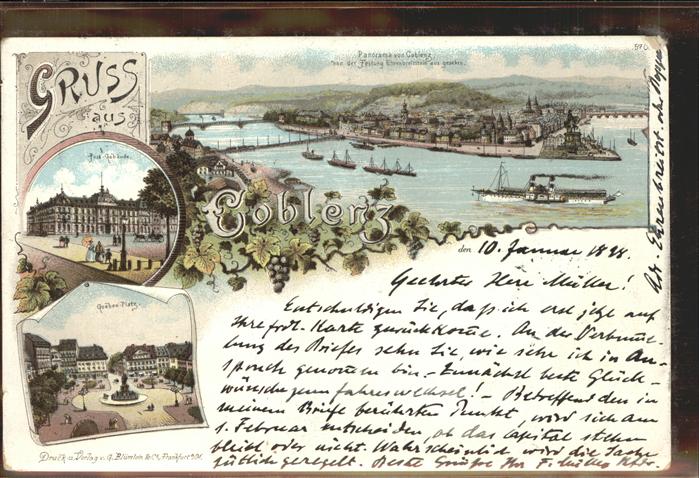 GRUSS
aus
Coblenz
Panorama von Coblenz
von der Festung Ehrenbreitstein aus gesehen.
Post-Gebäude.
Goeben-Platz.
den 10. Januar 1898
Geehrter Herr Müller!
Entschuldigen Sie, daß ich erst jetzt auf
Ihre frdl. Karte zurückkomme. An der
des Briefes sehen Sie, wie sehr ich in An-
spruch genommen bin. – Zunächst beste Glück-
wünsche zum Jahreswechsel! – Betreffend den in
meinem Briefe berührten Punkt, wird sich am
1. Februar entscheiden, ob das Capital stehen
bleibt oder nicht. Wahrscheinlich wird die Sache
gütlich geregelt. Beste Grüße Ihr
Druck u. Verlag v. G. Blümlein & Co., Frankfurt a/M.